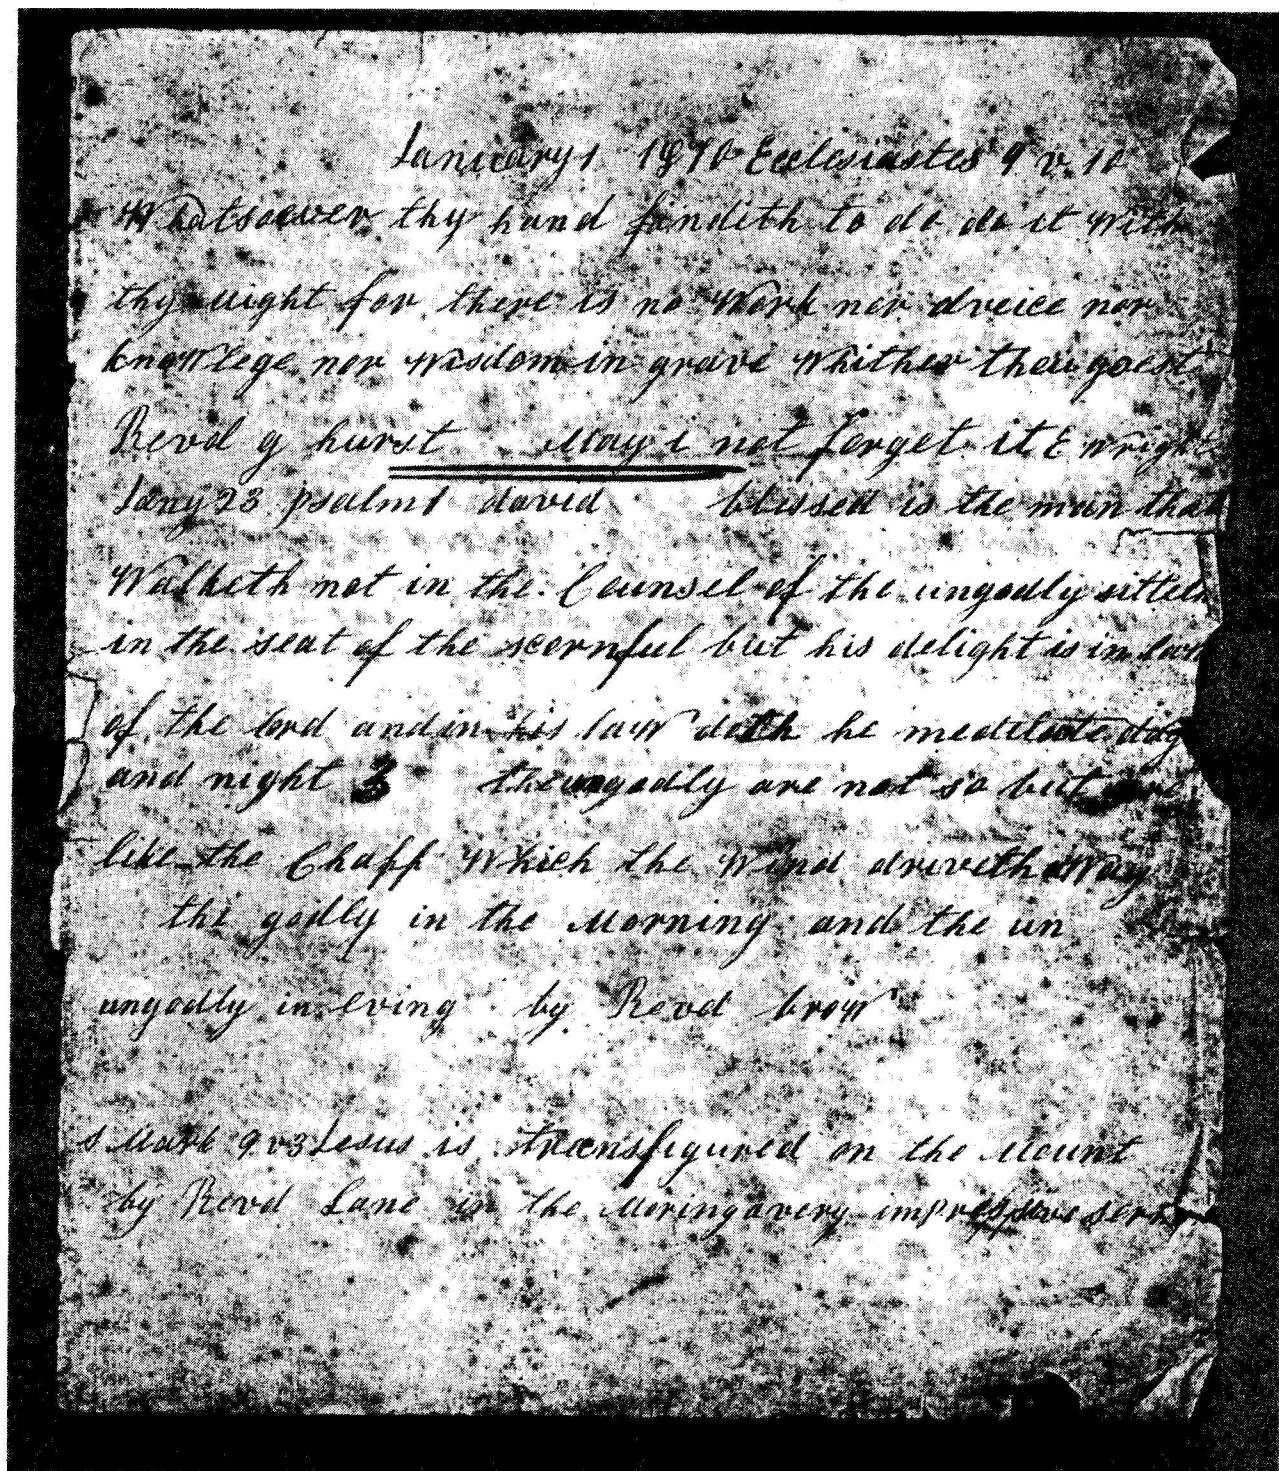 January 1 1870 Ecclesiastes 9 v. 10
Whatsoever thy hand findith to do do it With
thy might for there is no Work nor dveice nor
knowlege nor Wisdom in grave Whither thou goest
Revd g hurst May i not forget it E Wright
Jany 23 psalm 1 david blessed is the man that
Walketh not in the Counsel of the ungodly sitteth
in the seat of the scornful but his delight is in law
of the lord and in his law doth he meditate day
and night 3 the ungodly are not so but are
like the Chaff Which the Wind driveth aWay
the godly in the Morning and the un
ungodly in eving by Revd brow
S Mark 9 v 3 Jesus is transfigured on the Mount
by Revd Lane in the Moring a very impressive